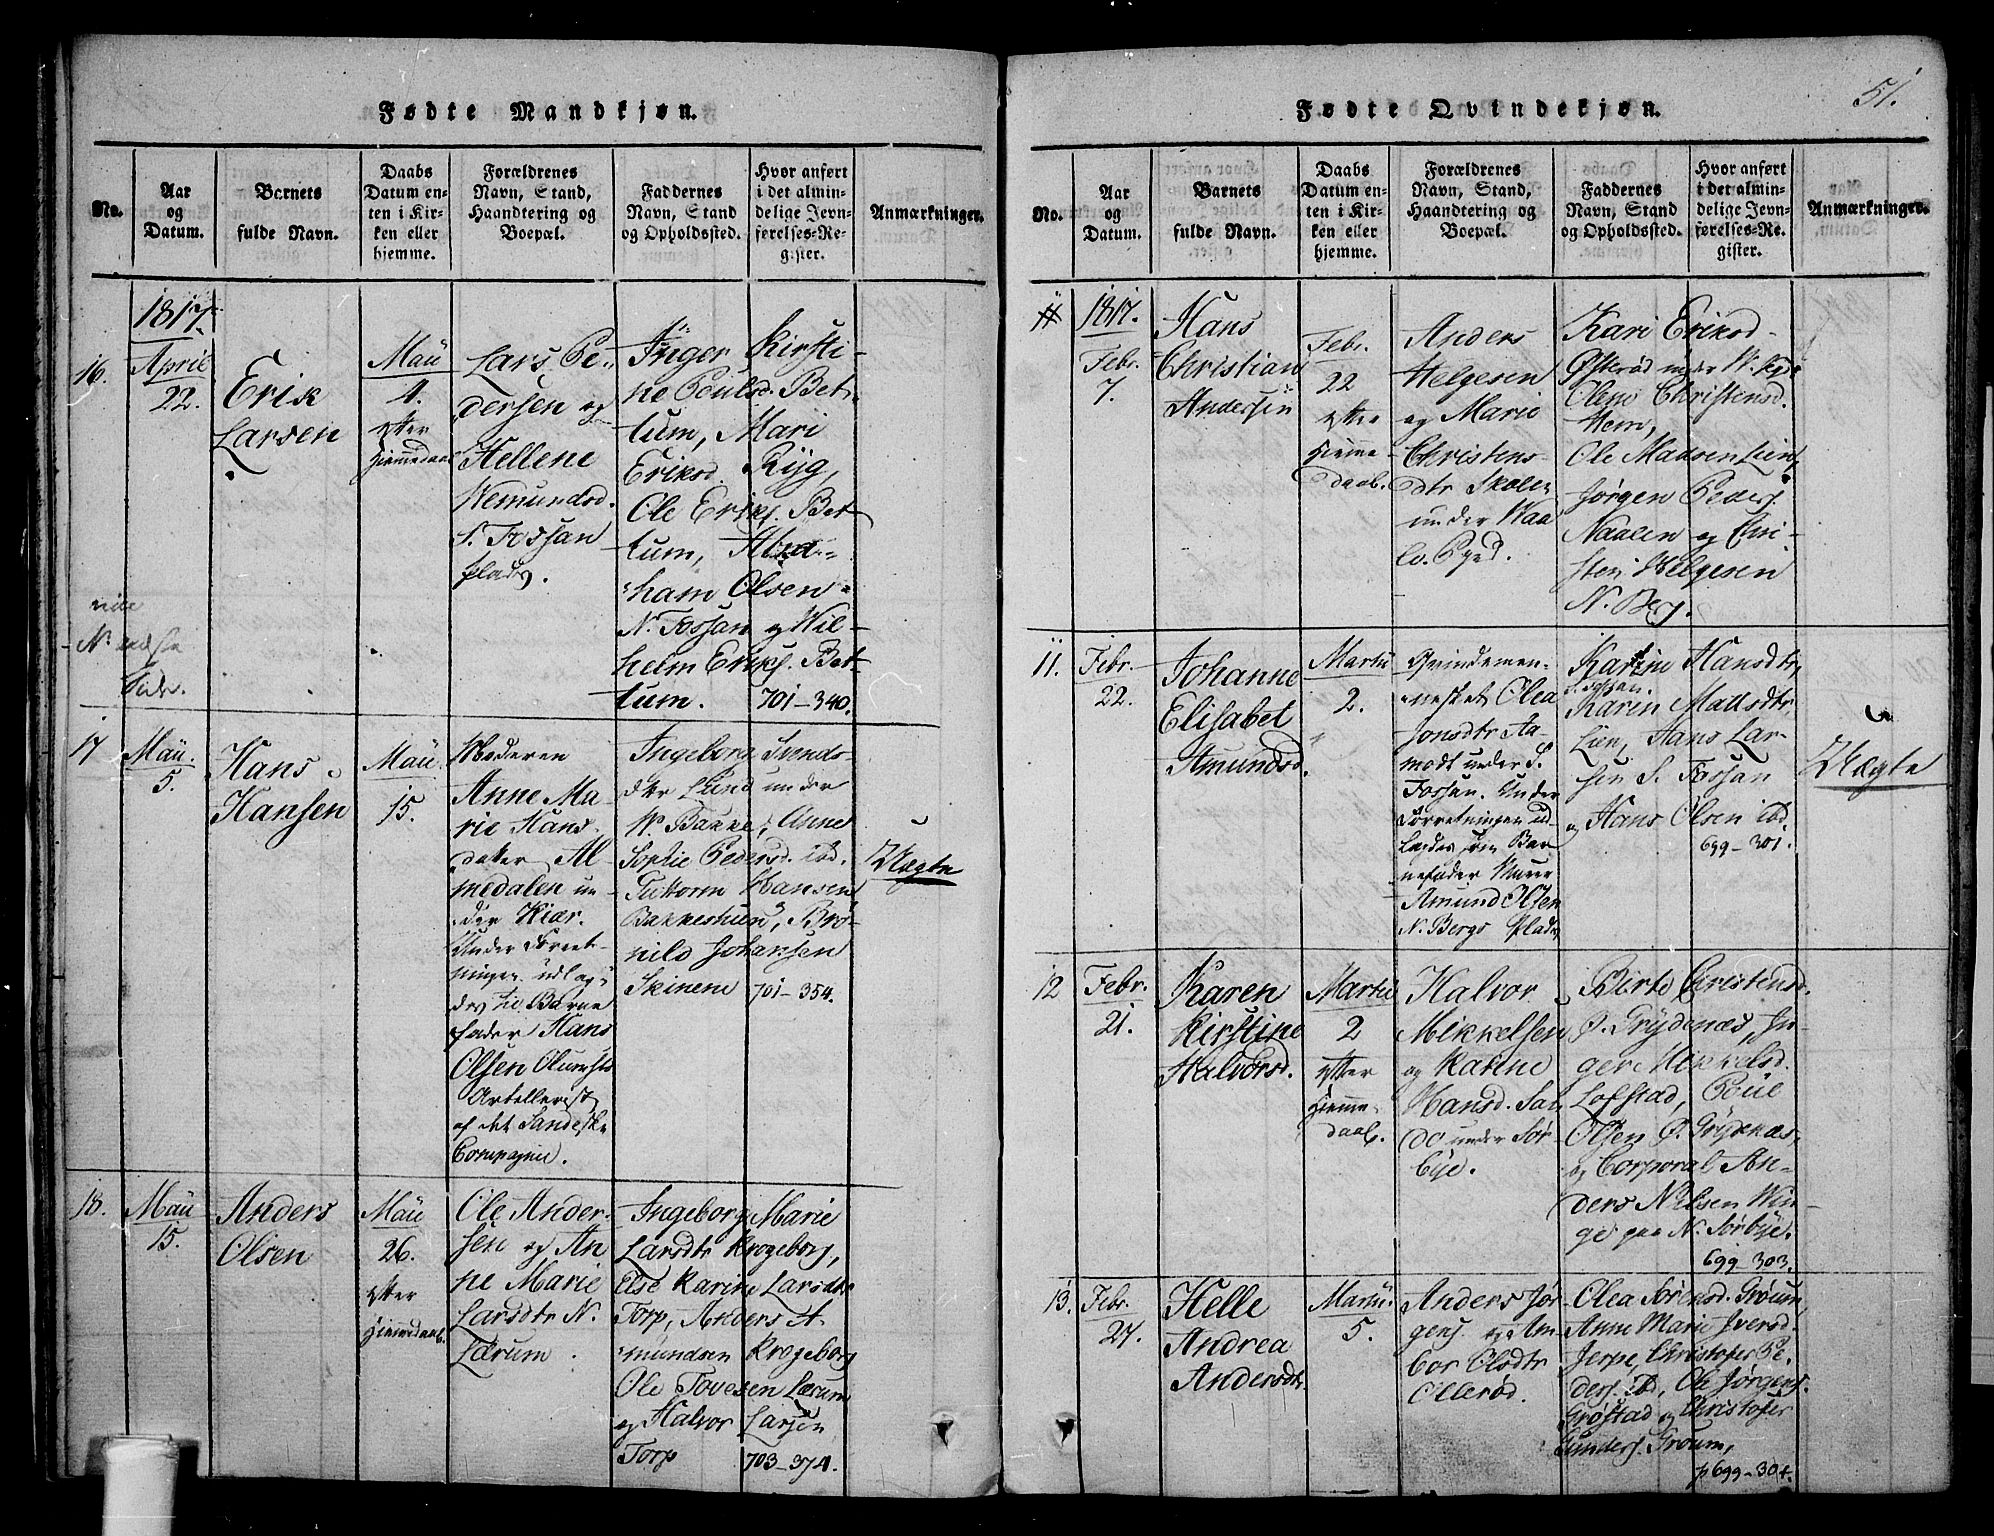 Fødte Mandkjøn.
No.
Aar
og
Datum.
Barnets
fulde Navn.
Daabs
Datum en-
ten i Kir-
ken eller
hjemme.
Forældrenes
Navn, Stand,
Haandtering og
Boepæl.
Faddernes
Navn, Stand
og Opholdssted.
Hvor anført
i det almin-
delige Jevn-
førelses-Re-
gister.
Anmærkninger.
1817.
16.
April
22.
Erik
Larsen
Maii
4.
efter
Hiemmedaab
Lars Pe-
dersen og
Hellene
Wemundsd.
S. Fossan
plads.
Inger Kirsti-
ne Poulsd. Bet-
tum, Mari
Eriksd. Ryg,
Ole Eriks. Bet
tum, Abra-
ham Olsen
N. Fossan og Wil-
helm Eriks. Bet-
tum. 701-340.
vide
N. næste
Side.
17
Maii
5.
Hans
Hansen
Maii
15.
Moderen
Anne Ma-
rie Hans-
datter Al-
medalen un-
der Kiær.
Under Forret-
ningen udlag-
des til Barne
fader Hans
Olsen
Artellerist
af det Sandeske
Compagnie.
Ingeborg Svends-
dtr Lund under
W. Bakke, Anne
Sophie Pedersd. ibd.
Guttorm Hansen
Bakkeshuus, Brø-
nild Johansen
Skinene 701-354.
Uægte
18.
Maii
15.
Anders
Olsen
Maii
26.
efter
Hiemmedaab.
Ole Ander-
sen og An
ne Marie
Larsdtr N.
Lærum.
Ingeborg Marie
Larsdtr Krogeborg,
Else Karine Larsdtr
Torp, Anders A-
mundsen Krogeborg
Ole Tovesen Lærum
og Halvor Larsen
Torp 703-374.
51.
Fødte Qvindekjøn.
No.
Aar
og
Datum.
Barnets
fulde Navn.
Daabs
Datum en-
ten i Kir-
ken eller
hjemme.
Forældrenes
Navn, Stand,
Haandtering og
Boepæl.
Faddernes
Navn, Stand
og Opholdssted.
Hvor anført
i det almin-
delige Jevn-
førelses-Re-
gister.
Anmærkninger.
1817.
Febr.
7.
Hans
Christian
Andersen
Febr.
22
efter
Hiemme
daab.
Anders
Helgesen
og Marie
Christens-
dtr Skolen
under Waa
Kari Eriksd.
Østerød under W.
Olene Christensd.
Hem,
Ole Madsen Lien,
Jørgen Peders.
Naalen og Chri-
sten Helgesen
N. Berg.
11.
Febr.
22.
Johanne
Elisabet
Amundsd.
Martii
2.
Qvindemen-
nesket Olea
Jonsdtr Aa-
modt under S.
Fossan. Under
Forretningen ud-
lagdes som Bar
nefader Murer
Amund Olsen
N. Bergs Plads
Karine Hansdtr,
S. Fossan.
Karen Madsdtr
Lien, Hans Lar-
sen S. Fossan
og Hans Olsen ibd
699-301.
Uægte
12
Febr.
21.
Karen
Kirstine
Halvorsd.
Martii
2
efter
Hiemme-
daab.
Halvor
Mikkelsen
og Karine
Hansd. San
do under Sør-
bye.
Birte Christensd.
Ø. Grydenæs, In-
ger Mikkelsd.
Lofstad, Poul
Olsen Ø. Grydenæs,
og Corporal An-
ders Nilsen Win-
ge paa N. Sørbye.
699-303.
13.
Febr.
27.
Helle
Andrea
Andersdtr
Martii
5.
Anders Jør-
gens. og Am
bor Olsdtr
Ollerød.
Olea Sørensd. Groum,
Anne Marie Iversd.
Jerpe, Christofer Pe-
ders. ibd, Ole Jørgens.
Grøstad og Christofer
Gunders. Groum,
p 699-304.